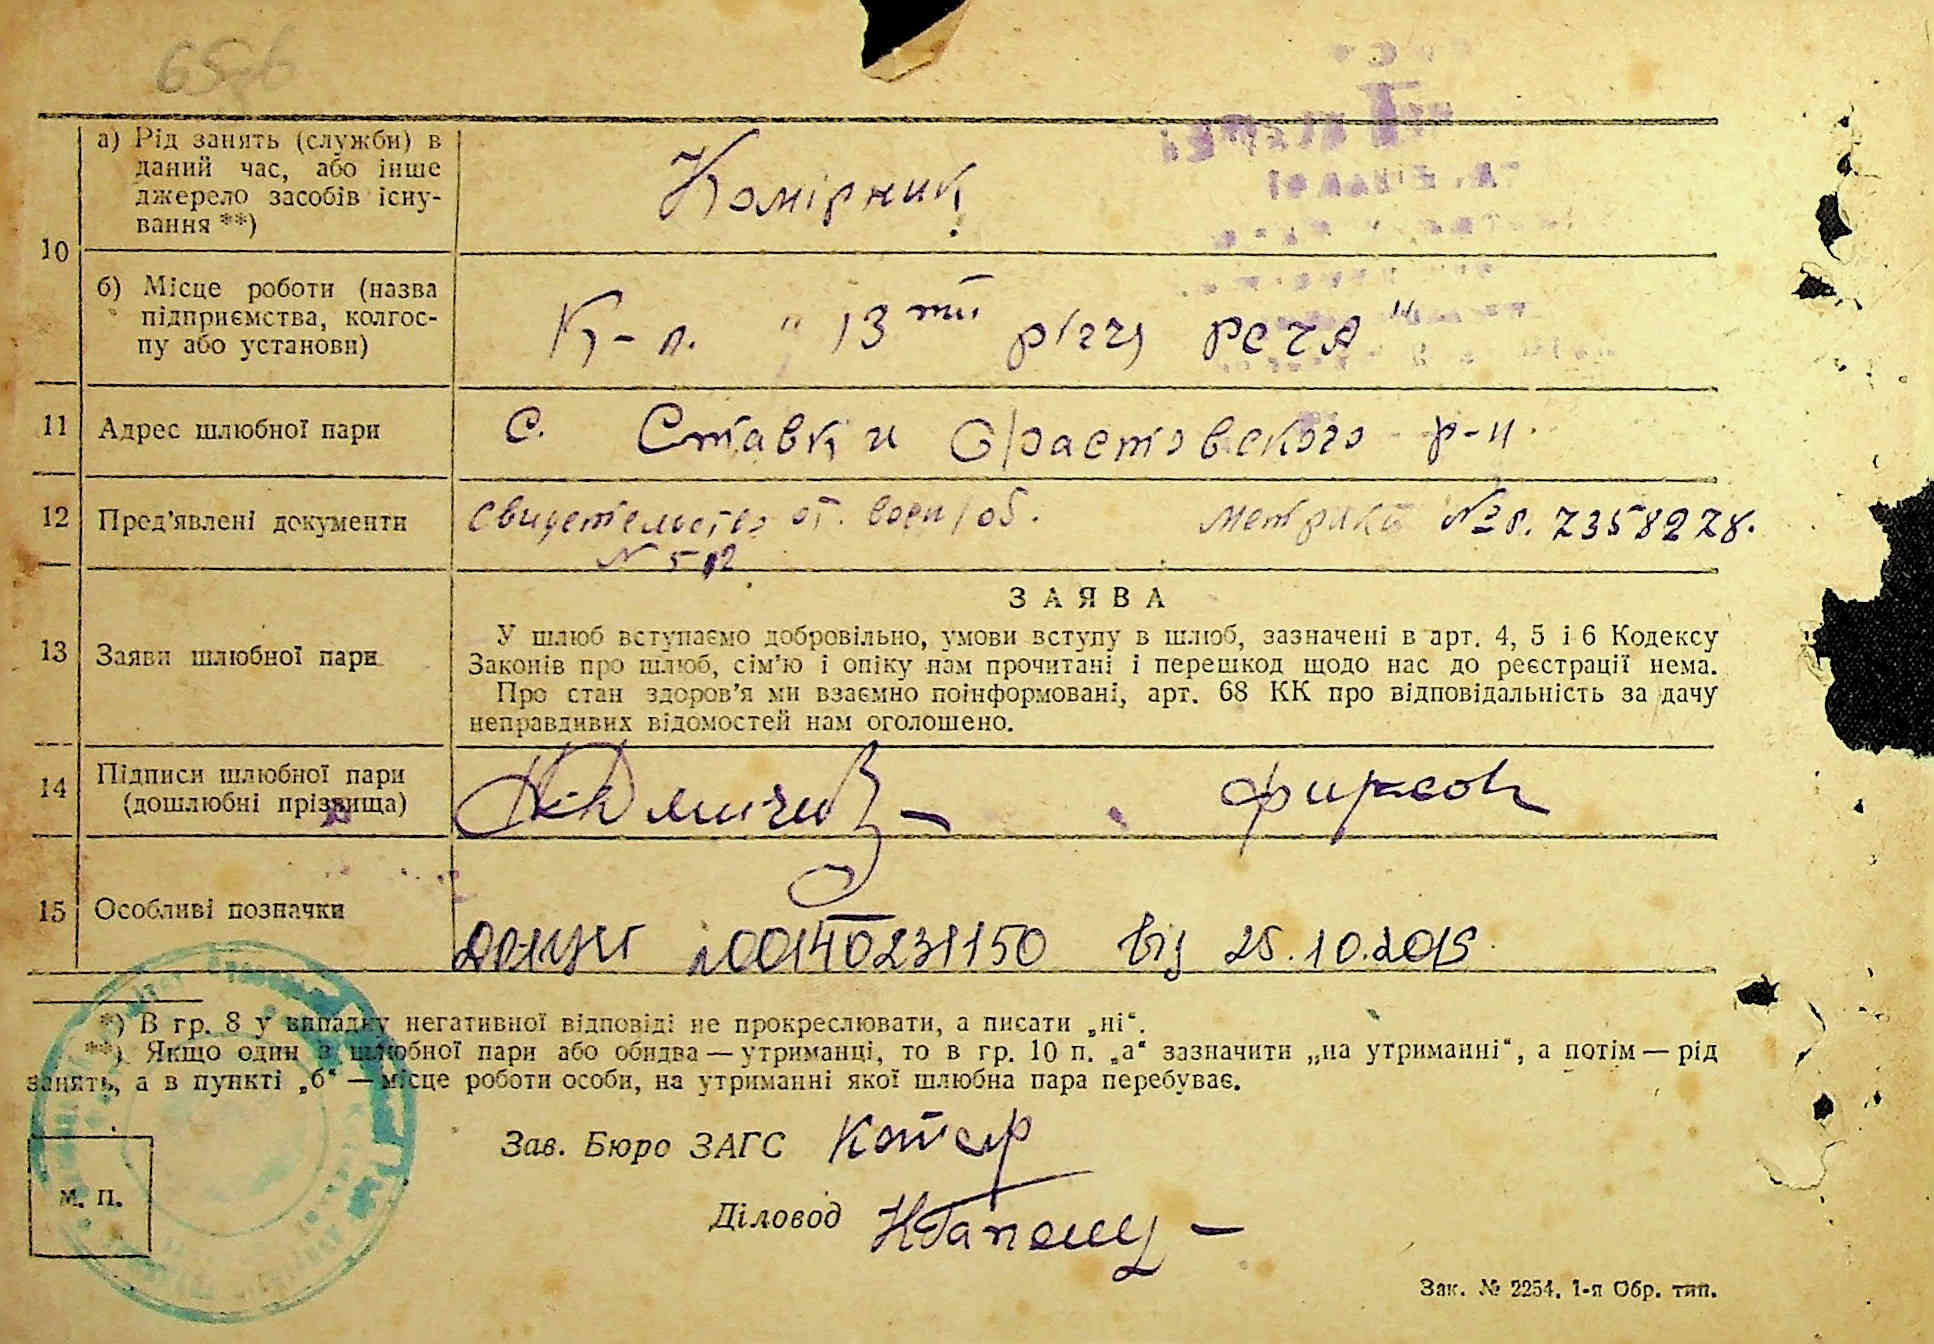 а) Рід занять (служби) в
даний час, або інше
джерело засобів існу-
вання **)
Комірник
10
б) Місце роботи (назва
підприємства, колгос-
пу або установи)
К-п. "13тий річчя РСЧА"
11 Адрес шлюбної пари
с. Ставки Фрастовского р-н.
12 Пред'явлені документи
Свидетельство от. Метрика № 7358278.
N 512
13 Заяви шлюбної пари
ЗАЯВА
У шлюб вступаємо добровільно, умови вступу в шлюб, зазначені в арт. 4, 5 і 6 Кодексу
Законів про шлюб, сім'ю і опіку нам прочитані і перешкод щодо нас до реєстрації нема.
Про стан здоров'я ми взаємно поінформовані, арт. 68 КК про відповідальність за дачу
неправдивих відомостей нам оголошено.
14 Підписи шлюбної пари
(дошлюбні прізвища)
Фирсов
15 Особливі позначки
00140231150 від 25.10.2019
*) В гр. 8 у випадку негативної відповіді не прокреслювати, а писати „ні“.
**) Якщо один з шлюбної пари або обидва — утриманці, то в гр. 10 п. „а“ зазначити „на утриманні“, а потім — рід
занять, а в пункті „б“ — місце роботи особи, на утриманні якої шлюбна пара перебуває.
Зав. Бюро ЗАГС
М. П.
Діловод
Зак. № 2254. 1-я Обр. тип.